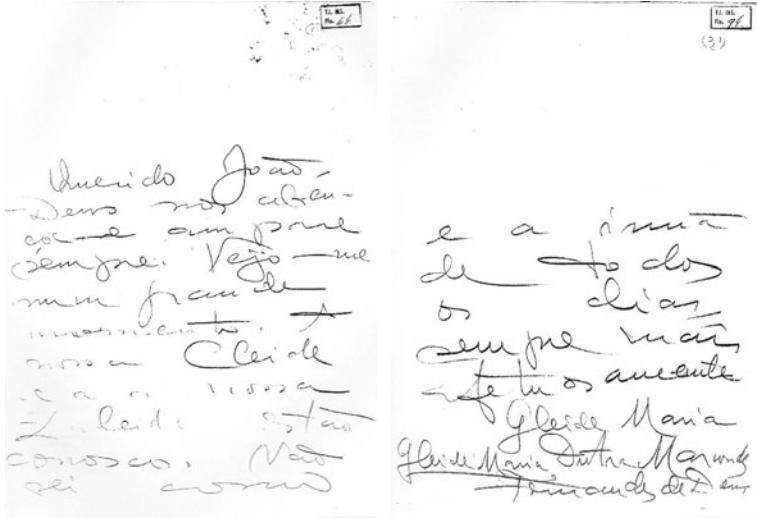 TJ. MS.
Fls.
Querido João,
Deus nos abên-
çoe e ampare
sempre. Vejo-me
num grande
momento. A
nossa Cleide
e a nossa
estão
conosco. Não
sei como
TJ. MS.
Fls. 94
(31)
e a irmã
de todos
os dias,
sempre mais
afetuosamente
Gleide Maria
Gleide Maria Dutra Marcondes
Fernandes de Deus